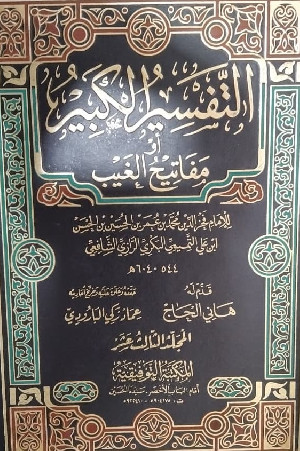 التفسير الكبير
أو
مفاتيح الغيب
للإمام فخر الدين محمد بن عمر بن الحسين بن الحسن
ابن علي التميمي البكري الرازي الشافعي
٥٤٤ - ٦٠٤ هـ
قدم له
هاني الحاج
حققه وعلق عليه وخرج أحاديثه
عماد زكي البارودي
المجلد الثالث عشر
المكتبة التوفيقية
أمام الباب الأخضر - سيدنا الحسين